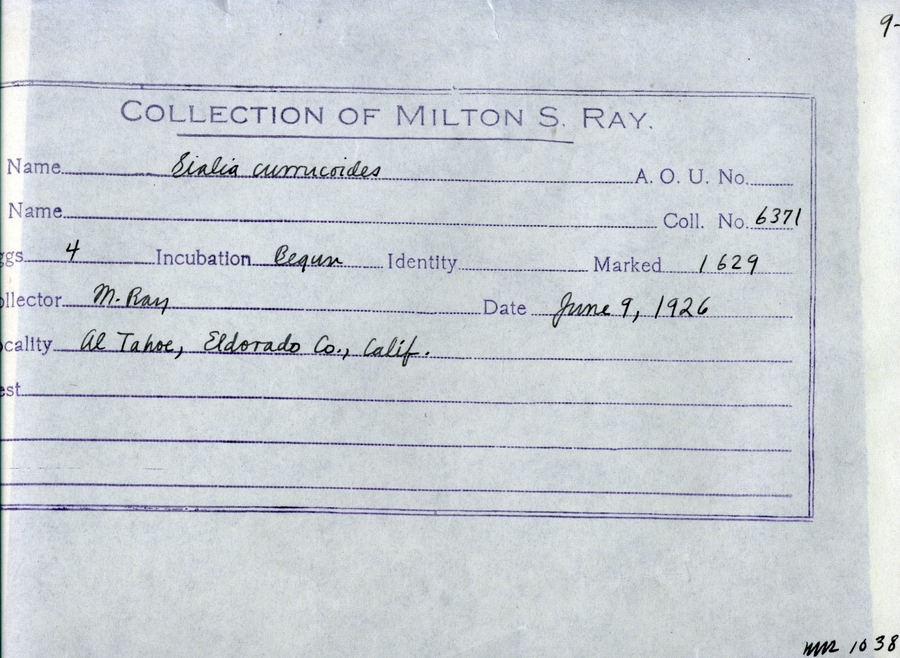 9-
COLLECTION OF MILTON S. RAY.
Name Sialia currucoides A. O. U. No.
Name Coll. No. 6371
ggs 4 Incubation Begun Identity Marked 1629
ollector M. Ray Date June 9, 1926
ocality Al Tahoe, Eldorado Co., Calif.
est
1038